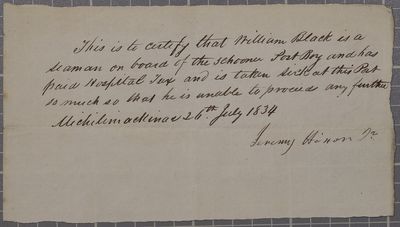 This is to certify that William Black is a
seaman on board of the schooner Post Boy and has
paid Hospital Tax and is taken sick at this Port
so much so that he is unable to proceed any further
Michilimackinac 26th July 1834
Jeremy Hixon Jr